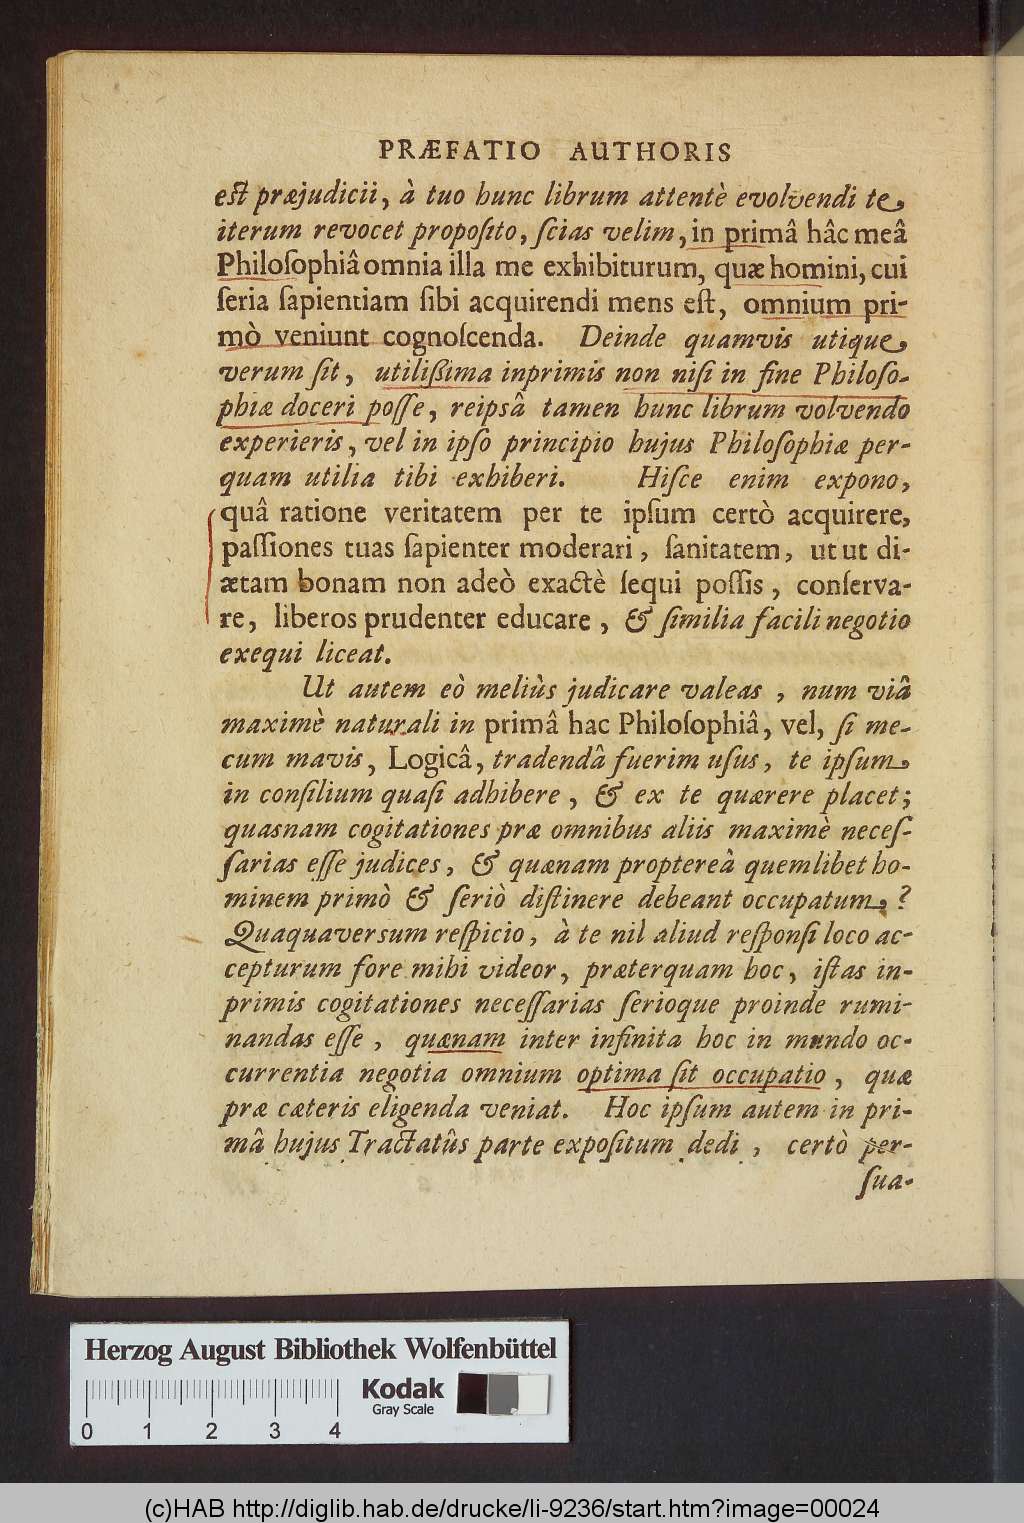 PRÆFATIO AUTHORIS
est præjudicii, à tuo hunc librum attentè evolvendi te
iterum revocet proposito, ſcias velim, in primâ hâc meâ
Philoſophiâ omnia illa me exhibiturum, quæ homini, cui
ſeria ſapientiam ſibi acquirendi mens eſt, omnium pri-
mò veniunt cognoſcenda. Deinde quamvis utique
verum ſit, utilißima inprimis non niſi in fine Philoſo-
phiæ doceri poſſe, reipsâ tamen hunc librum volvendo
experieris, vel in ipſo principio hujus Philoſophiæ per-
quam utilia tibi exhiberi. Hiſce enim expono,
quâ ratione veritatem per te ipſum certò acquirere,
paſſiones tuas ſapienter moderari, ſanitatem, ut ut di-
ætam bonam non adeò exactè ſequi poſſis, conſerva-
re, liberos prudenter educare, & ſimilia facili negotio
exequi liceat.
Ut autem eò meliùs judicare valeas, num viâ
maximè naturali in primâ hac Philoſophiâ, vel, ſi me-
cum mavis, Logicâ, tradendâ fuerim uſus, te ipſum
in conſilium quaſi adhibere, & ex te quærere placet;
quasnam cogitationes præ omnibus aliis maximè neceſ-
ſarias eſſe judices, & quænam propterea̋ quemlibet ho-
minem primò & ſeriò diſtinere debeant occupatum?
Quaquaversum reſpicio, à te nil aliud reſponſi loco ac-
cepturum fore mihi videor, præterquam hoc, iſtas in-
primis cogitationes neceſſarias ſerioque proinde rumi-
nandas eſſe, quænam inter infinita hoc in mundo oc-
currentia negotia omnium optima ſit occupatio, quæ
præ cæteris eligenda veniat. Hoc ipſum autem in pri-
mâ hujus Tractatûs parte expoſitum dedi, certò per-
ſua-
Herzog August Bibliothek Wolfenbüttel
Kodak
Gray Scale
0 1 2 3 4
(c)HAB http://diglib.hab.de/drucke/li-9236/start.htm?image=00024